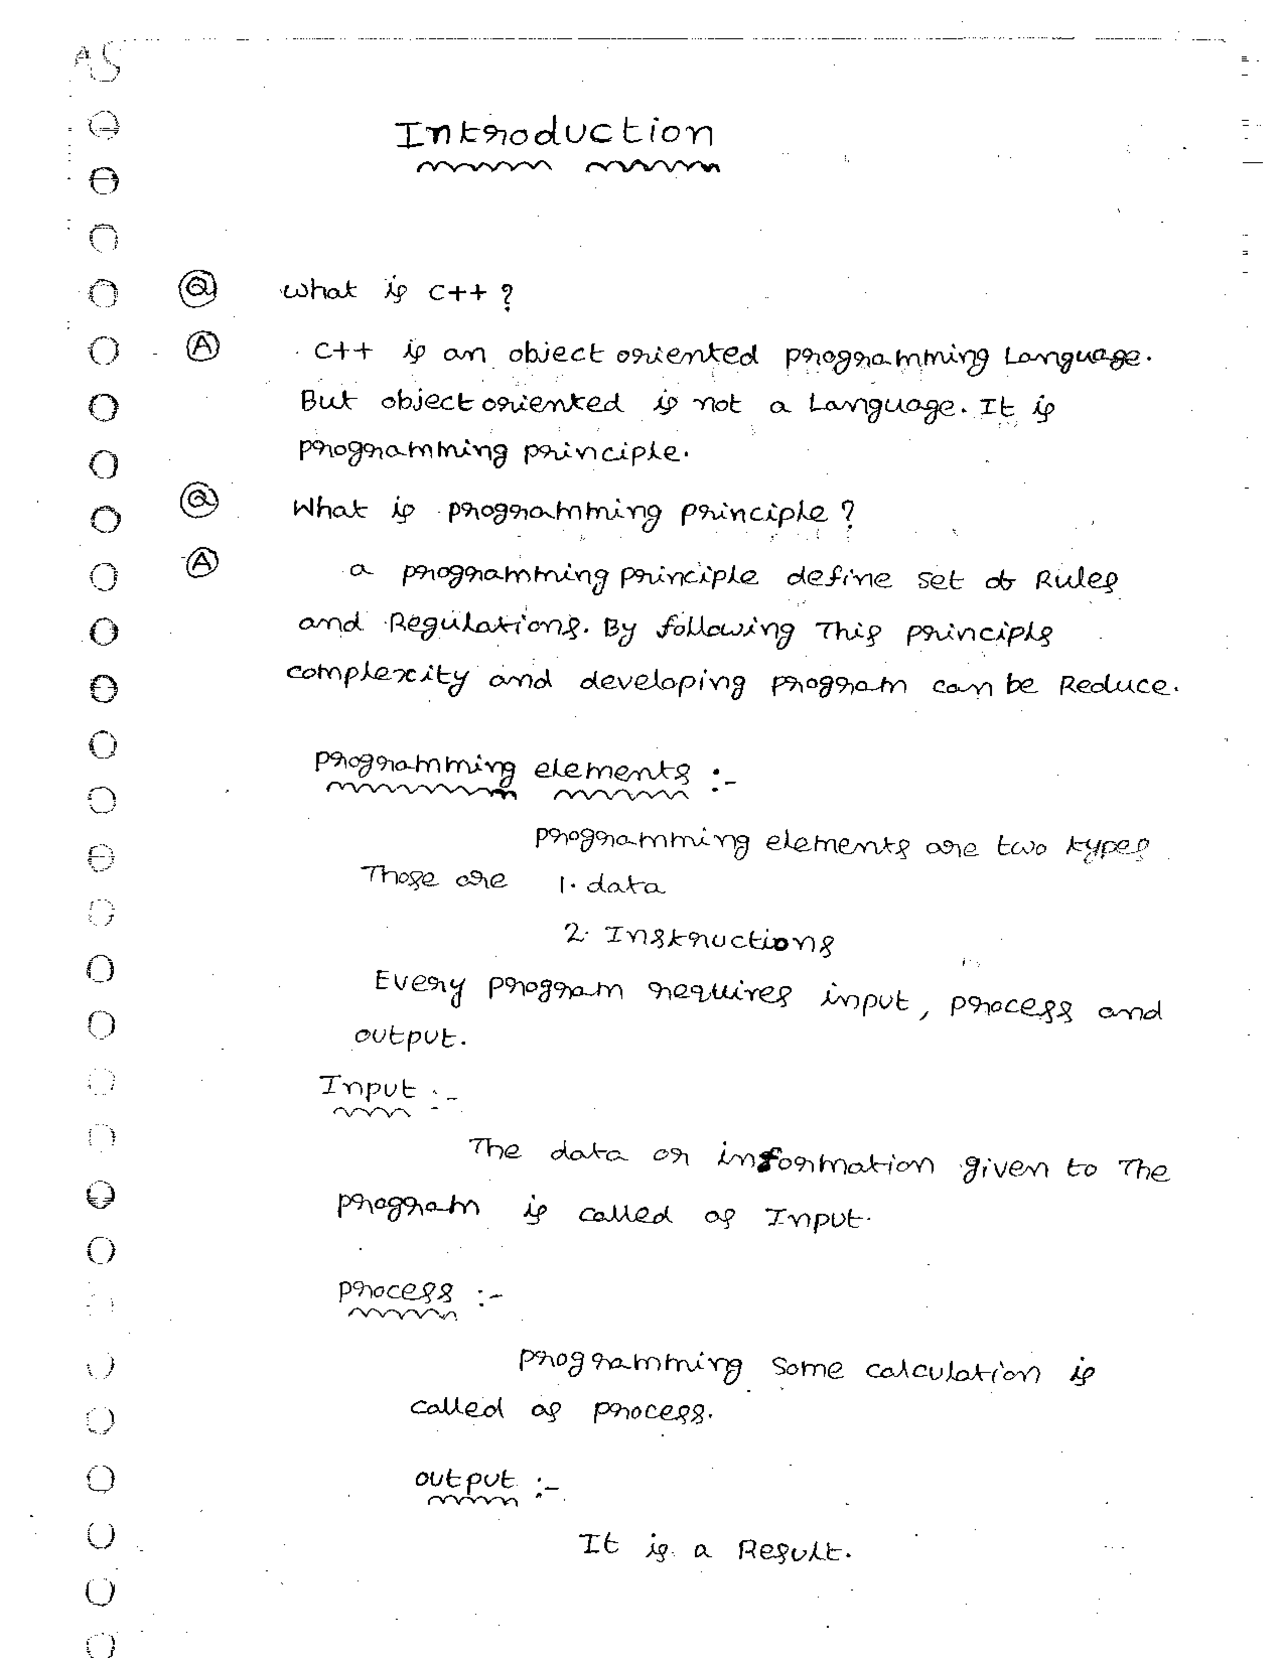 AS
Introduction
Q What is C++ ?
A C++ is an object oriented programming Language.
But object oriented is not a Language. It is
programming principle.
Q What is programming principle ?
A a programming principle define set of Rules
and Regulations. By following This principls
complexity and developing program can be Reduce.
programming elements :-
programming elements are two types
Those are 1. data
2. Instructions
Every program requires input, process and
output.
Input :-
The data or information given to The
program is called as Input.
process :-
programming some calculation is
called as process.
output :-
It is a Result.